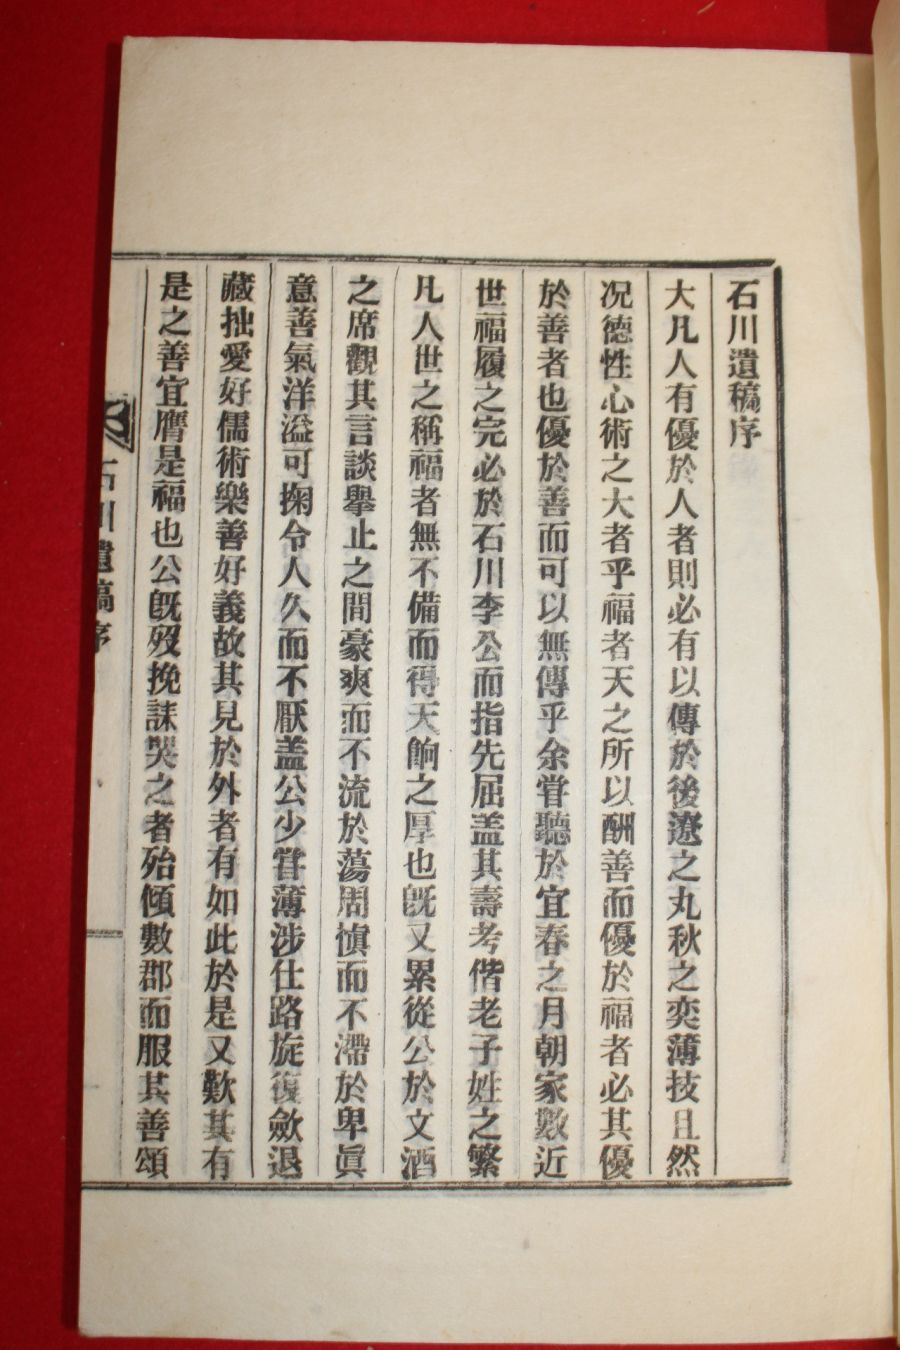 石川遺稿序
大凡人有優於人者則必有以傳於後遼之丸秋之奕薄技且然
况德性心術之大者乎福者天之所以酬善而優於福者必其優
於善者也優於善而可以無傳乎余甞聽於宜春之月朝家數近
世福履之完必於石川李公而指先屈盖其壽考偕老子姓之繁
凡人世之稱福者無不備而得天餉之厚也旣又累從公於文酒
之席觀其言談擧止之間豪爽而不流於蕩周愼而不滯於卑眞
意善氣洋溢可掬令人久而不厭盖公少甞薄涉仕路旋復斂退
藏拙愛好儒術樂善好義故其見於外者有如此於是又歎其有
是之善宜膺是福也公旣歿挽誄哭之者殆傾數郡而服其善頌
石川遺稿序